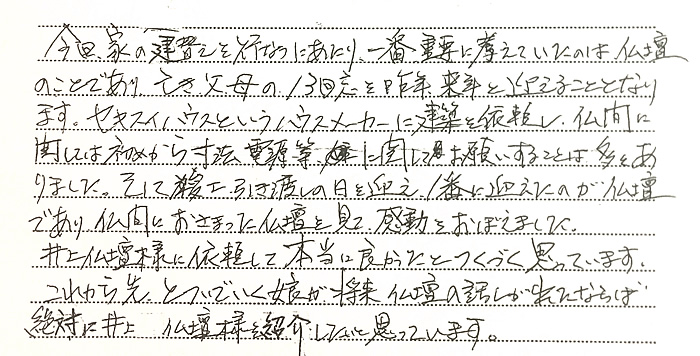 今回家の建替えを行なうにあたり、一番重要に考えていたのは仏壇
のことであり 亡き父母の13回忌を昨年、来年と迎えることとなり
ます。セキスイハウスというハウスメーカーに建築を依頼し、仏間に
関しては初めから寸法、電源等、に関してはお願いすることは多々あ
りました。そして竣工引き渡しの日を迎え、1番に迎えたのが仏壇
であり、仏間におさまった仏壇を見て、感動をおぼえました。
井上仏壇様に依頼して本当に良かったとつくづく思っています。
これから先、とついでいく娘が将来仏壇の話しが出たならば
絶対に井上 仏壇様を紹介したいと思っています。